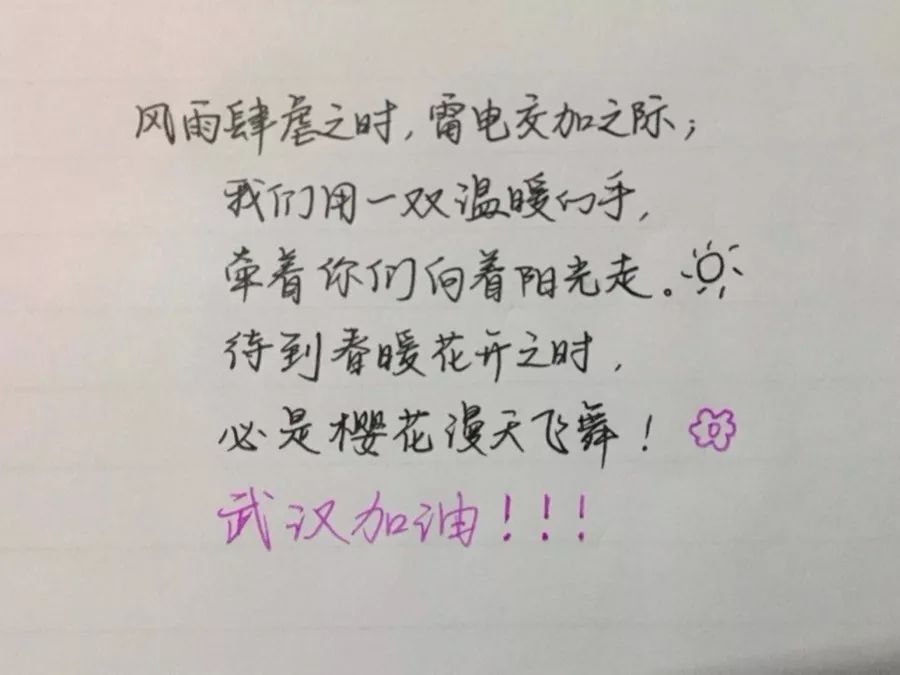 风雨肆虐之时,雷电交加之际;
我们用一双温暖的手,
牵着你们向着阳光走。
待到春暖花开之时,
必是樱花漫天飞舞!
武汉加油!!!